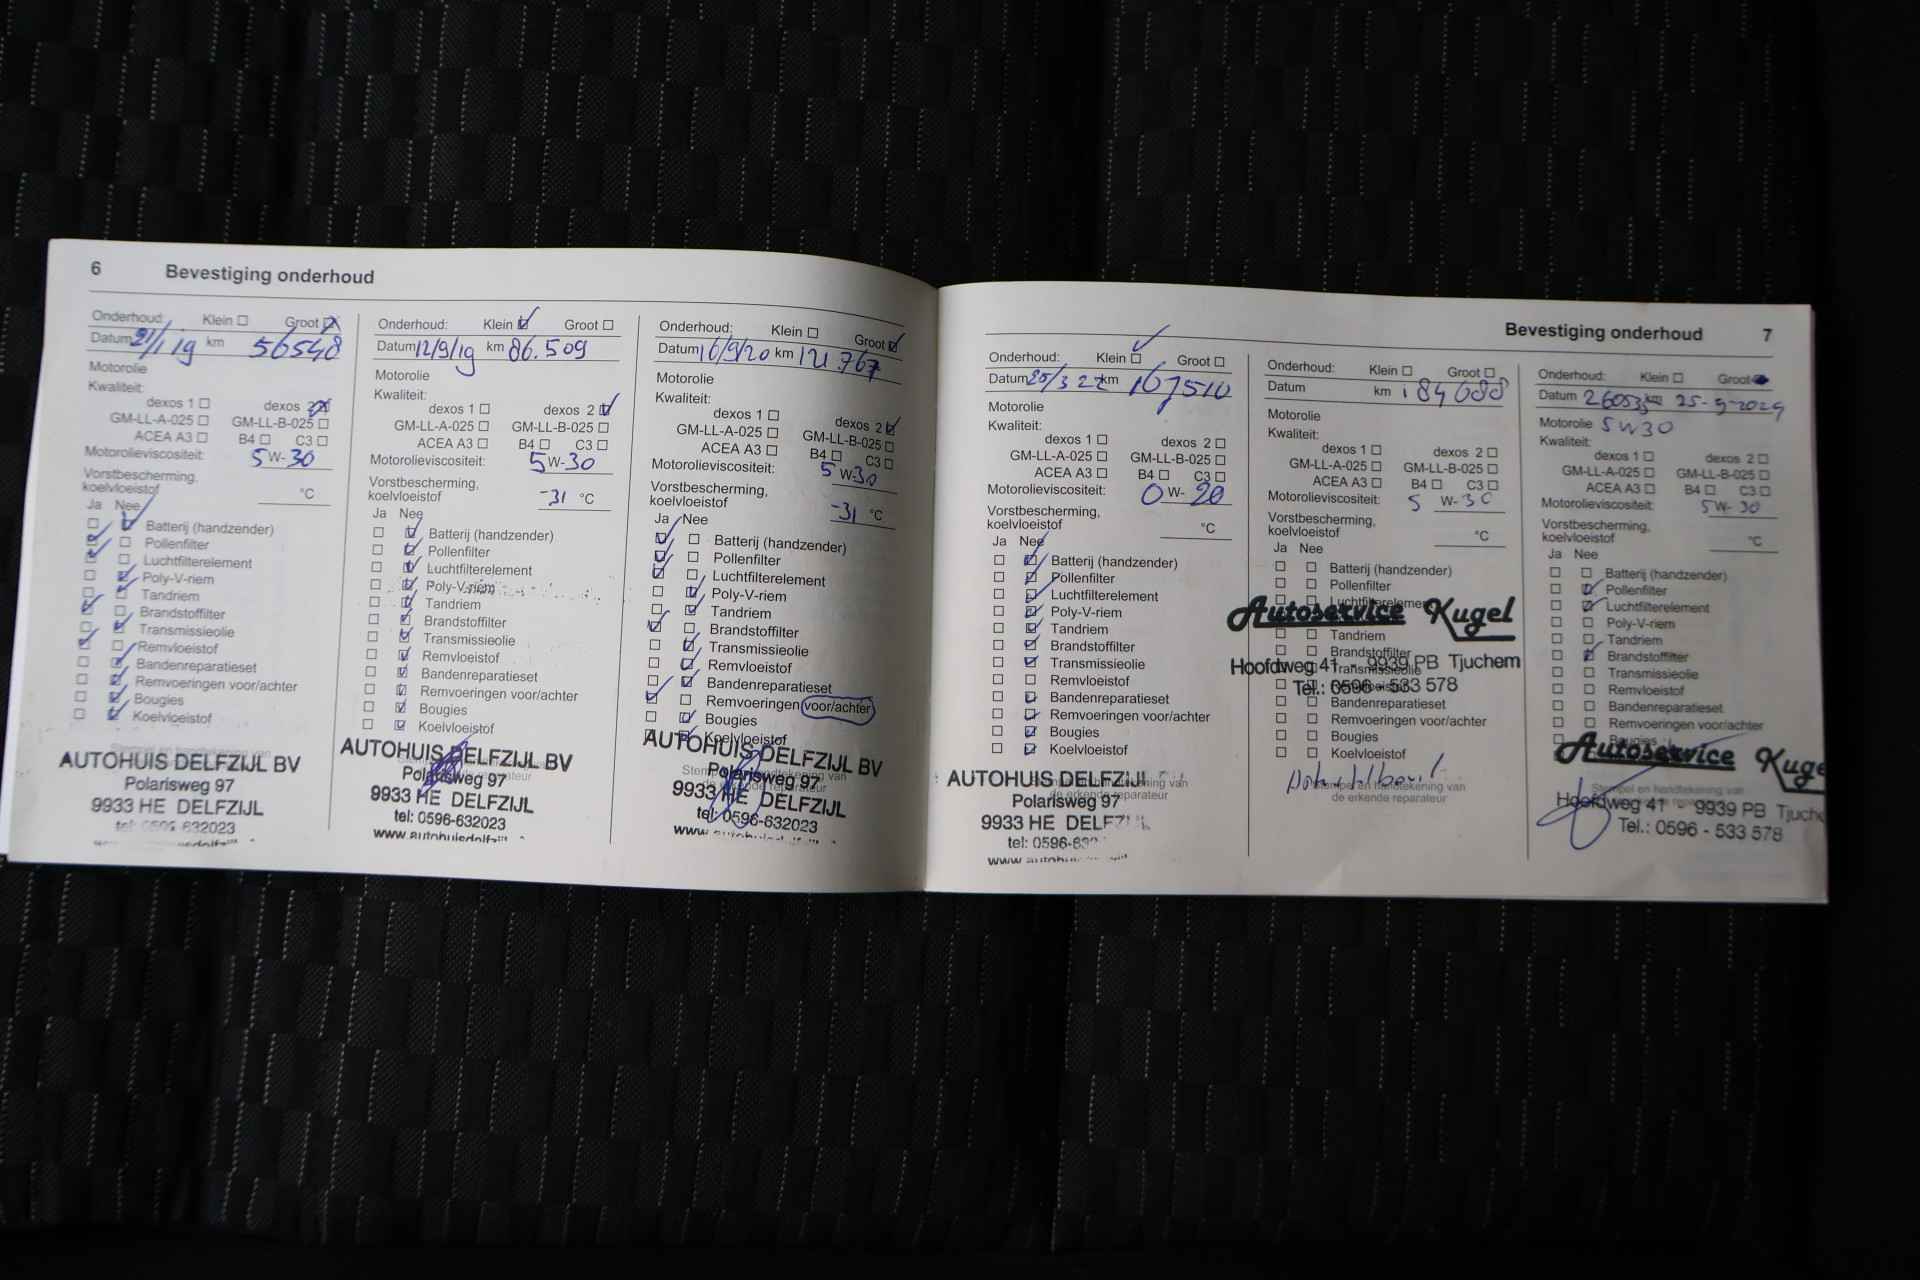 6 Bevestiging onderhoud
Onderhoud: Klein Groot
Datum 21/1 19 km 56548
Motorolie
Kwaliteit:
dexos 1 dexos 2
GM-LL-A-025 GM-LL-B-025
ACEA A3 B4 C3
Motorolieviscositeit: 5 W-30
Vorstbescherming,
koelvloeistof °C
Ja Nee
Batterij (handzender)
Pollenfilter
Luchtfilterelement
Poly-V-riem
Tandriem
Brandstoffilter
Transmissieolie
Remvloeistof
Bandenreparatieset
Remvoeringen voor/achter
Bougies
Koelvloeistof
AUTOHUIS DELFZIJL BV
Polarisweg 97
9933 HE DELFZIJL
tel: 0596-632023
Onderhoud: Klein Groot
Datum 12/9/19 km 86.509
Motorolie
Kwaliteit:
dexos 1 dexos 2
GM-LL-A-025 GM-LL-B-025
ACEA A3 B4 C3
Motorolieviscositeit: 5 W-30
Vorstbescherming,
koelvloeistof -31 °C
Ja Nee
Batterij (handzender)
Pollenfilter
Luchtfilterelement
Poly-V-riem
Tandriem
Brandstoffilter
Transmissieolie
Remvloeistof
Bandenreparatieset
Remvoeringen voor/achter
Bougies
Koelvloeistof
AUTOHUIS DELFZIJL BV
Polarisweg 97
9933 HE DELFZIJL
tel: 0596-632023
Onderhoud: Klein Groot
Datum 16/9/20 km 121.767
Motorolie
Kwaliteit:
dexos 1 dexos 2
GM-LL-A-025 GM-LL-B-025
ACEA A3 B4 C3
Motorolieviscositeit: 5 W-30
Vorstbescherming,
koelvloeistof -31 °C
Ja Nee
Batterij (handzender)
Pollenfilter
Luchtfilterelement
Poly-V-riem
Tandriem
Brandstoffilter
Transmissieolie
Remvloeistof
Bandenreparatieset
Remvoeringen voor/achter
Bougies
Koelvloeistof
AUTOHUIS DELFZIJL BV
Polarisweg 97
9933 HE DELFZIJL
tel: 0596-632023
Bevestiging onderhoud 7
Onderhoud: Klein Groot
Datum 25/3 22 km 167510
Motorolie
Kwaliteit:
dexos 1 dexos 2
GM-LL-A-025 GM-LL-B-025
ACEA A3 B4 C3
Motorolieviscositeit: 0 W-20
Vorstbescherming,
koelvloeistof °C
Ja Nee
Batterij (handzender)
Pollenfilter
Luchtfilterelement
Poly-V-riem
Tandriem
Brandstoffilter
Transmissieolie
Remvloeistof
Bandenreparatieset
Remvoeringen voor/achter
Bougies
Koelvloeistof
AUTOHUIS DELFZIJL
Polarisweg 97
9933 HE DELFZIJL
Onderhoud: Klein Groot
Datum km 184088
Motorolie
Kwaliteit:
dexos 1 dexos 2
GM-LL-A-025 GM-LL-B-025
ACEA A3 B4 C3
Motorolieviscositeit: 5 W-30
Vorstbescherming,
koelvloeistof °C
Ja Nee
Batterij (handzender)
Pollenfilter
Luchtfilterelement
Autoservice Kugel
Tandriem
Brandstoffilter
Hoofdweg 41 - 9939 PB Tjuchem
Tel.: 0596 - 533 578
Bandenreparatieset
Remvoeringen voor/achter
Bougies
Koelvloeistof
Stempel en handtekening van
de erkende reparateur
Onderhoud: Klein Groot
Datum 260535 km 25-9-2024
Motorolie 5W30
Kwaliteit:
dexos 1 dexos 2
GM-LL-A-025 GM-LL-B-025
ACEA A3 B4 C3
Motorolieviscositeit: 5 W-30
Vorstbescherming,
koelvloeistof °C
Ja Nee
Batterij (handzender)
Pollenfilter
Luchtfilterelement
Poly-V-riem
Tandriem
Brandstoffilter
Transmissieolie
Remvloeistof
Bandenreparatieset
Remvoeringen voor/achter
Bougies
Autoservice Kuge
Hoofdweg 41 9939 PB Tjuch
Tel.: 0596 - 533 578